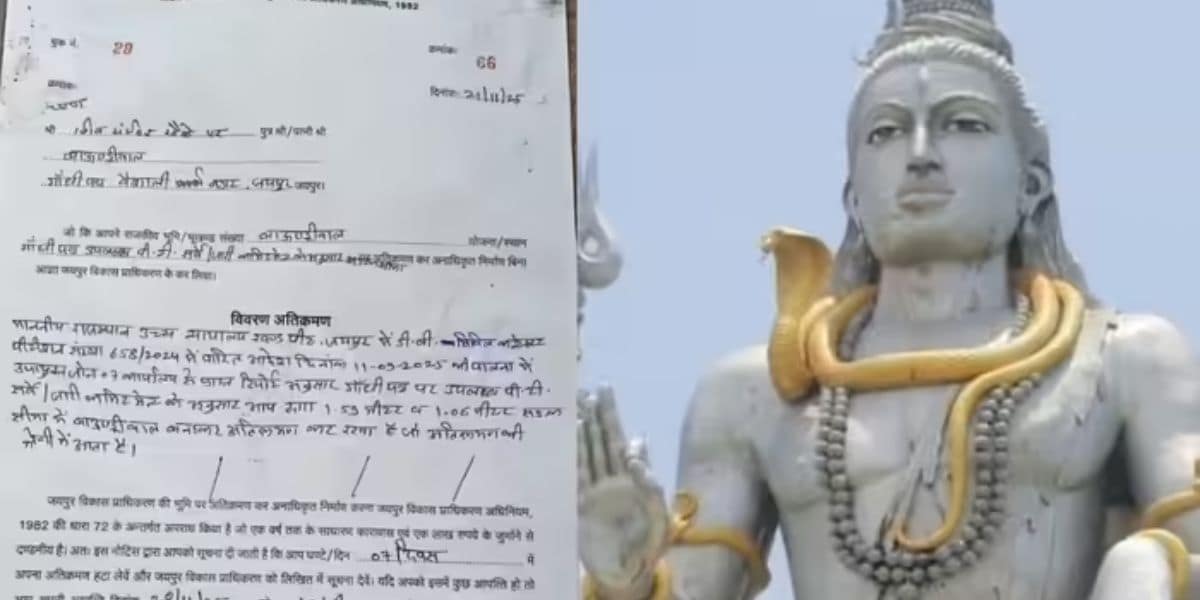 अधिनियम, 1982
बुक नं. 29
क्रमांक: 66
क्रमांक:
दिनांक: 21/11/25
श्री शिव मंदिर पुत्र श्री/पत्नी श्री
बाउण्ड्रीवाल
गाँधी पथ वैशाली नगर, जयपुर जयपुर।
जो कि आपने राजकीय भूमि/भूखण्ड संख्या बाउण्ड्रीवाल योजना/स्थान
गाँधी पथ उपलब्ध पी.टी. सर्वे/ के अनुसार कर अनाधिकृत निर्माण बिना
आज्ञा जयपुर विकास प्राधिकरण के कर लिया।
विवरण अतिक्रमण
माननीय राजस्थान उच्च न्यायालय जयपुर के डी.बी. सिविल
पीटीशन संख्या 658/2024 में पारित आदेश दिनांक 11-03-2025 की पालना में
उपायुक्त जोन 07 कार्यालय के प्राप्त रिपोर्ट अनुसार गाँधी पथ पर उपलब्ध पी.टी.
सर्वे/ के अनुसार आप द्वारा 1.59 मीटर व 1.06 मीटर सड़क
सीमा में बाउण्ड्रीवाल बनाकर अतिक्रमण कर रखा है जो अतिक्रमण की
श्रेणी में आता है।
जयपुर विकास प्राधिकरण की भूमि पर अतिक्रमण कर अनाधिकृत निर्माण करना जयपुर विकास प्राधिकरण अधिनियम,
1982 की धारा 72 के अन्तर्गत अपराध किया है जो एक वर्ष तक के साधारण कारावास एवं एक लाख रुपये के जुर्माने से
दण्डनीय है। अतः इस नोटिस द्वारा आपको सूचना दी जाती है कि आप घण्टे/दिन 07 दिवस में
अपना अतिक्रमण हटा लेवें और जयपुर विकास प्राधिकरण को लिखित में सूचना देवें। यदि आपको इसमें कुछ आपत्ति हो तो